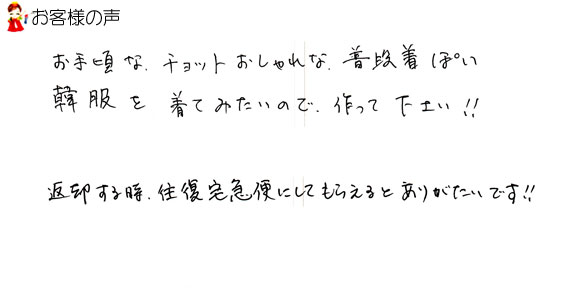 お客様の声
お手頃な、チョットおしゃれな、普段着ぽい
韓服を着てみたいので、作って下さい!!
返却する時、往復宅急便にしてもらえるとありがたいです!!